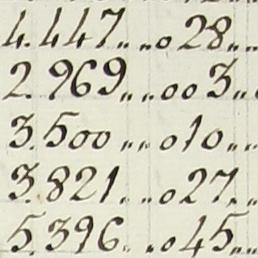 4.447,,..028,,..
2.969,,..003,,..
3.500,,..010,,..
3.821,,..027,,..
5.396,,..045,,..